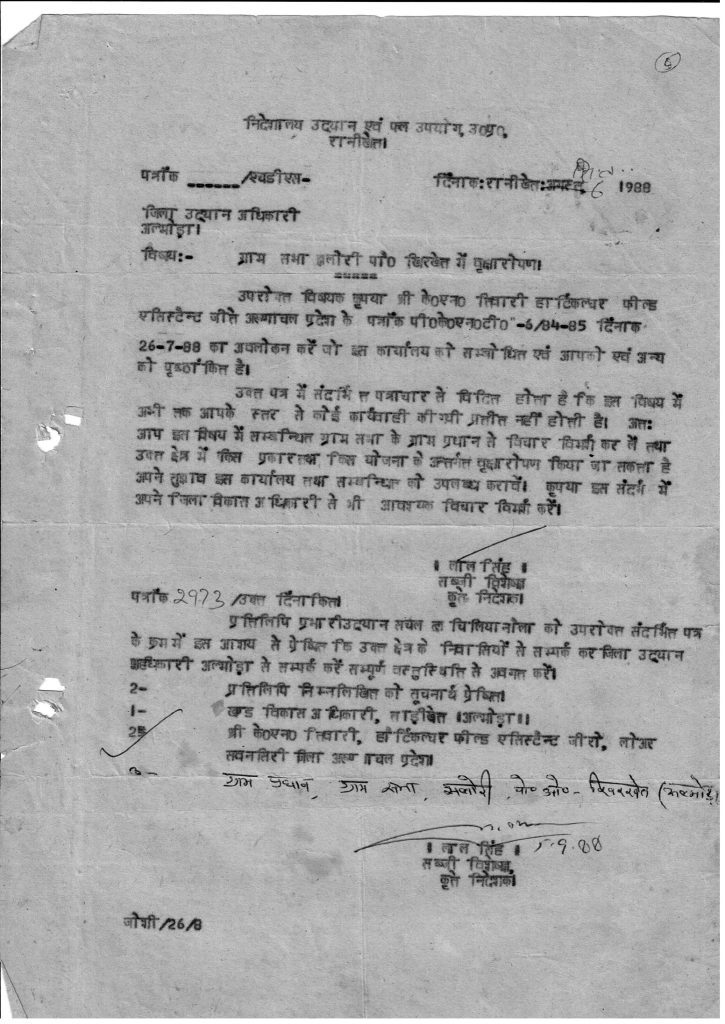 ६
निदेशालय उद्यान एवं फल उपयोग, उ०प्र०,
रानीखेत।
पत्रॉक ______/एचडीएस-
दिनाक:रानीखेत:अगस्त 6 1988
जिला उद्यान अधिकारी
अल्मोड़ा।
विषय:- ग्राम सभा इलोरी पो0 खिरखेत में वृक्षारोपण।
=====
उपरोक्त विषयक कृपया श्री के0एन0 तिवारी हार्टिकल्चर फील्ड
एसिस्टैन्ट जीरो अरूणाचल प्रदेश के पत्रॉक पी0के0एन0टी0"-6/84-85 दिनाक
26-7-88 का अवलोकन करें जो इस कार्यालय को सम्बोधित एवं आपको एवं अन्य
को पृष्ठांकित है।
उक्त पत्र में संदर्भित पत्राचार से विदित होता है कि इस विषय में
अभी तक आपके स्तर से कोई कार्यवाही की गयी प्रतीत नहीं होती है। अत:
आप इस विषय में सम्बन्धित ग्राम सभा के ग्राम प्रधान से विचार विमर्श कर लें तथा
उक्त क्षेत्र में किस प्रकार तथा किस योजना के अन्तर्गत वृक्षारोपण किया जा सकता है
अपने सुझाव इस कार्यालय तथा सम्बन्धित को उपलब्ध करावें। कृपया इस संदर्भ में
अपने जिला विकास अधिकारी से भी आवश्यक विचार विमर्श करें।
। लाल सिंह ।
सब्जी विशेषज्ञ
कृते निदेशक।
पत्रॉक 2973 /उक्त दिनांकित।
प्रतिलिपि प्रभारी उद्यान सचल दल चिलियानौला को उपरोक्त संदर्भित पत्र
के क्रम में इस आशय से प्रेषित कि उक्त क्षेत्र के निवासियों से सम्पर्क कर जिला उद्यान
अधिकारी अल्मोड़ा से सम्पर्क करें सम्पूर्ण वस्तुस्थिति से अवगत करें।
2- प्रतिलिपि निम्नलिखित को सूचनार्थ प्रेषित।
1- खण्ड विकास अधिकारी, ताड़ीखेत ।अल्मोड़ा।।
2- श्री के0एन0 तिवारी, हार्टिकल्चर फील्ड एसिस्टैन्ट जीरो, लोअर
सुबनसिरी जिला अरूणाचल प्रदेश।
3- ग्राम प्रधान, ग्राम सभा, पो० ओ०- खिरखेत (अल्मोड़ा)
। लाल सिंह । 5.9.88
सब्जी विशेषज्ञ,
कृते निदेशक।
जोशी/26/8